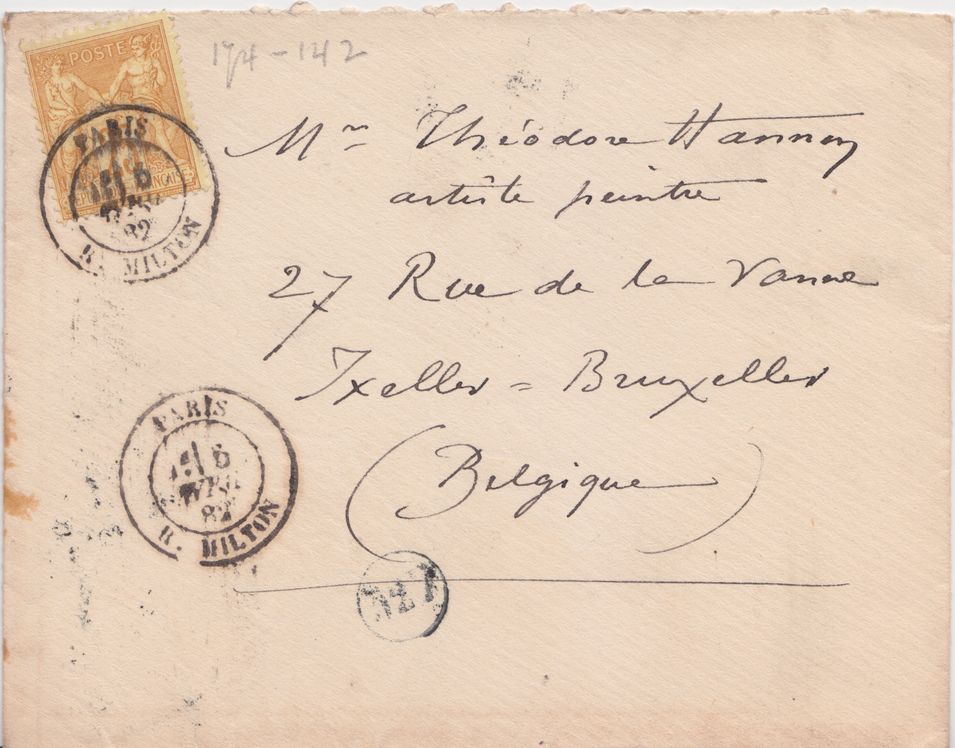 174-142
POSTE
Mr Théodore Hannon
artiste peintre
27 Rue de la Vanne
Ixelles = Bruxelles
(Belgique)
PARIS
82
R. MILTON
PARIS
6
AVRIL
82
R. MILTON